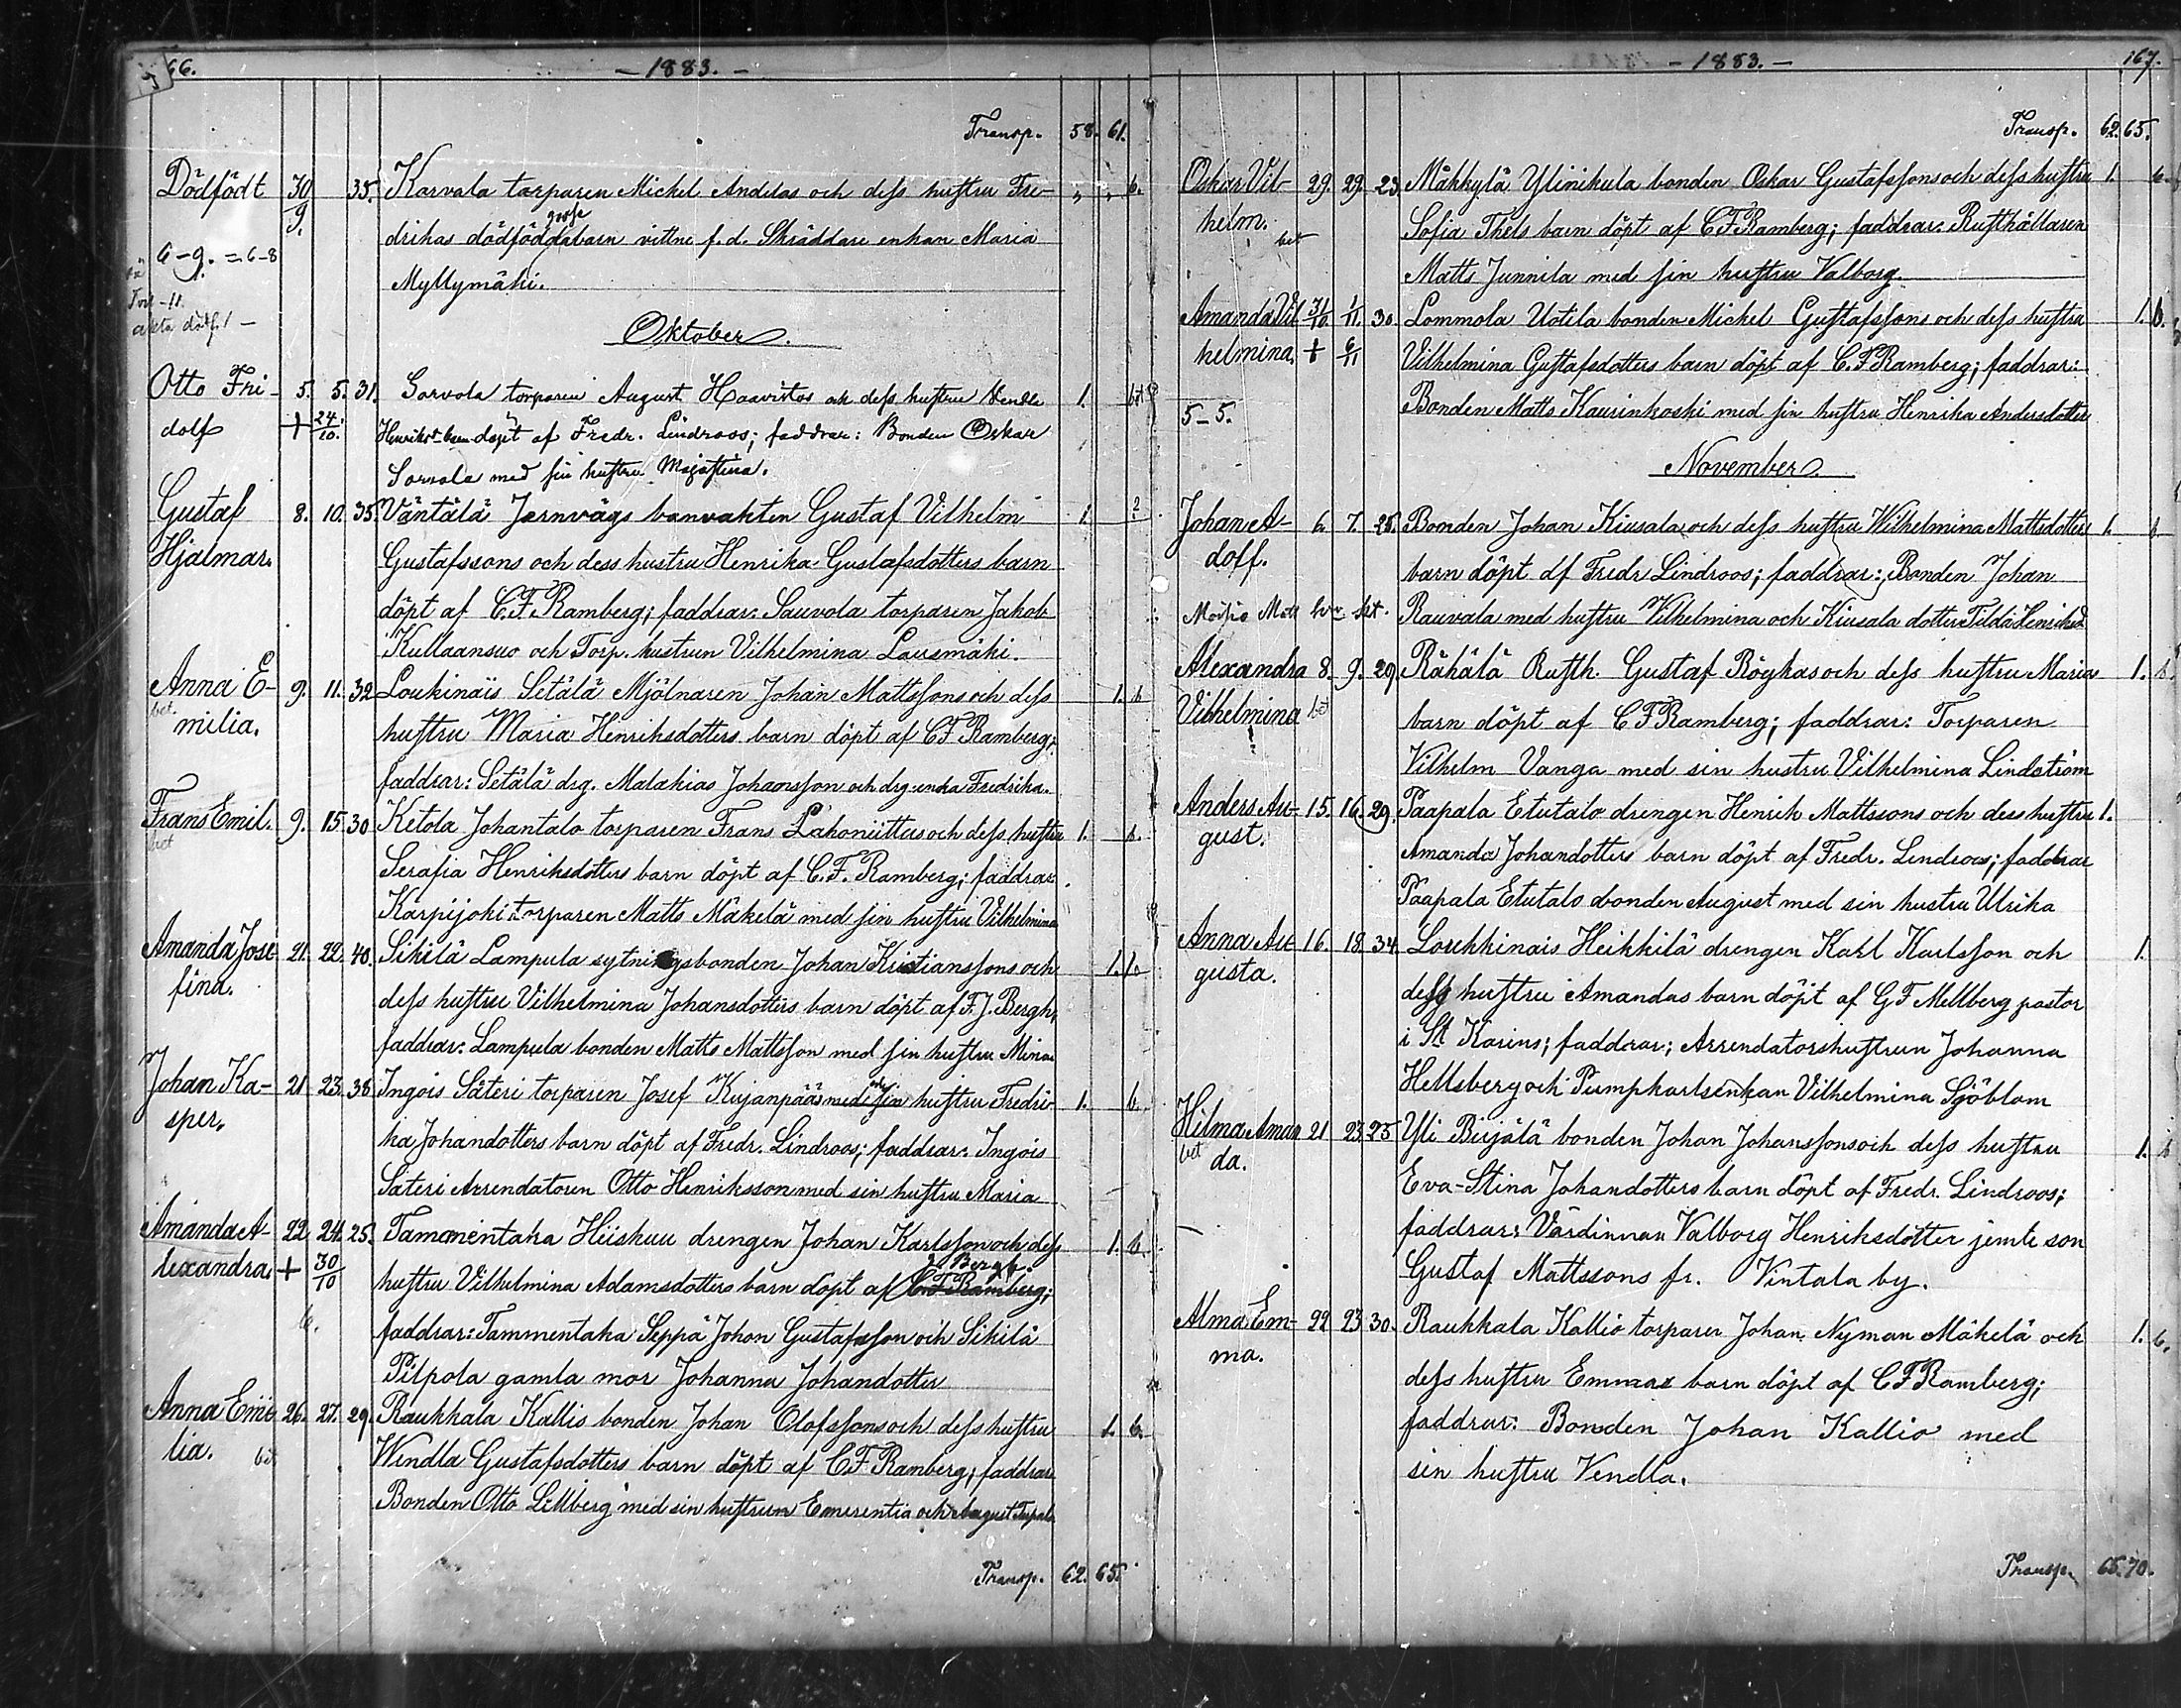 66.
- 1883. -
Transp. 58. 61.
Dödfödt 30/9. 35. Karvala torparen Michel Andelas och dess hustru Fre- „ „ b.
drikas dödföddabarn vittne f.d. Skräddare enkan Maria
gosse
6-9. = 6-8
Myllymäki.
Oktober.
Otto Fri- 5. 5. 31. Sorvola torparen August Haavistos och dess hustru Vendla 1.
dolf + 24/10. Henriksd- barn döpt af Fredr. Lindroos; faddrar: Bonden Oskar
Sorvola med sin hustru Majastina.
Gustaf 8. 10. 35. Väntälä Jernvägs banvakten Gustaf Vilhelm 1. 2
Hjalmar. Gustafssons och dess hustru Henrika Gustafsdotters barn
döpt af C.F. Ramberg; faddrar: Sauvola torparen Jakob
Kullaansuo och Torp. hustrun Vilhelmina Lausmäki.
Anna E- 9. 11. 32 Loukinais Setälä Mjölnaren Johan Mattssons och dess 1. b
bet.
milia. hustru Maria Henriksdotters barn döpt af CF Ramberg;
faddrar: Setälä drg. Malakias Johansson och drg-enka Fredrika.
Frans Emil. 9. 15. 30 Ketola Johantalo torparen Frans Lahoniittus och dess hustru 1. b.
bet
Serafia Henriksdotters barn döpt af C.F. Ramberg; faddrar:
Karpijoki torparen Matts Mäkelä med sin hustru Vilhelmina
Amanda Jose- 21. 22. 40. Sikilä Lampula sytningsbonden Johan Kristianssons och 1. b
fina. dess hustru Vilhelmina Johansdotters barn döpt af F.J. Bergh;
faddrar: Lampula bonden Matts Mattsson med sin hustru Mina
Johan Ka- 21 23. 38 Ingois Säteri torparen Josef Kujanpääs med sin hustru Fredri- 1. b.
och
sper. ka Johandotters barn döpt af Fredr. Lindroos; faddrar: Ingois
Säteri Arrendatoren Otto Henriksson med sin hustru Maria
Amanda A- 22 24. 25. Tammentaka Hiiskuu drengen Johan Karlsson och dess 1. b.
Bergh.
lexandra. + 30/10 hustru Vilhelmina Adamsdotters barn döpt af C.F. Ramberg;
b. faddrar: Tammentaka Seppä Johan Gustafsson och Sikilä
Pilpola gamla mor Johanna Johandotter
Anna Emi- 26. 27. 29. Raukkala Kallio bonden Johan Olofssons och dess hustru 1. b.
lia. Windla Gustafsdotters barn döpt af C.F. Ramberg; faddrar:
Bonden Otto Lillberg med sin hustrun Emerentia och August
Transp. 62. 65.
- 1883. -
167.
Transp. 62. 65.
Oskar Vil- 29. 29. 23. Mäkkylä Ylinikula bonden Oskar Gustafssons och dess hustru 1. b.
helm. Sofia Thels barn döpt af CF Ramberg; faddrar: Rusthållaren
bet
Matts Junnila med sin hustru Valborg.
Amanda Vil- 31/10. 1/11. 30. Lommola Uotila bonden Michel Gustafssons och dess hustru 1. b.
helmina. + 6/11 Vilhelmina Gustafsdotters barn döpt af C.F Ramberg; faddrar:
5-5. Bonden Matts Kaurinkoski med sin hustru Henrika Andersdotter
November.
Johan A- 6. 7. 25. Bonden Johan Kiusala och dess hustru Wilhelmina Mattsdotters 1. b
dolf. barn döpt af Fredr Lindroos; faddrar: Bonden Johan
Rauvala med hustru Vilhelmina och Kiusala dotter Tilda Henriksd
Alexandra 8. 9. 29. Rähälä Rusth. Gustaf Röykas och dess hustru Maria 1. b.
Vilhelmina bet barn döpt af C F Ramberg; faddrar: Torparen
Vilhelm Vanga med sin hustru Vilhelmina Lindström
Anders Au- 15. 16. 29. Paapala Etutalo drengen Henrik Mattssons och dess hustru 1.
gust. Amanda Johandotters barn döpt af Fredr. Lindroos; faddrar
Paapala Etutalo bonden August med sin hustru Ulrika
Anna Au- 16. 18. 34. Loukkinais Heikkilä drengen Karl Karlsson och 1.
gusta. dess hustru Amandas barn döpt af G F Mellberg pastor
i St Karins; faddrar; Arrendatorshustrun Johanna
Hellsberg och Pumpkarlsenkan Vilhelmina Sjöblom
Hilma Aman 21 23. 25. Yli Birjälä bonden Johan Johanssons och dess hustru 1. b
bet
da. Eva-Stina Johandotters barn döpt af Fredr. Lindroos;
faddrar: Värdinnan Valborg Henriksdotter jemte son
Gustaf Mattssons fr. Vintala by.
Alma Em- 22 23 30. Raukkala Kallio torparen Johan Nyman Mäkelä och 1. b.
ma. dess hustru Emmas barn döpt af C F Ramberg;
faddrar: Bonden Johan Kallio med
sin hustru Vendla.
Transp. 65. 70.